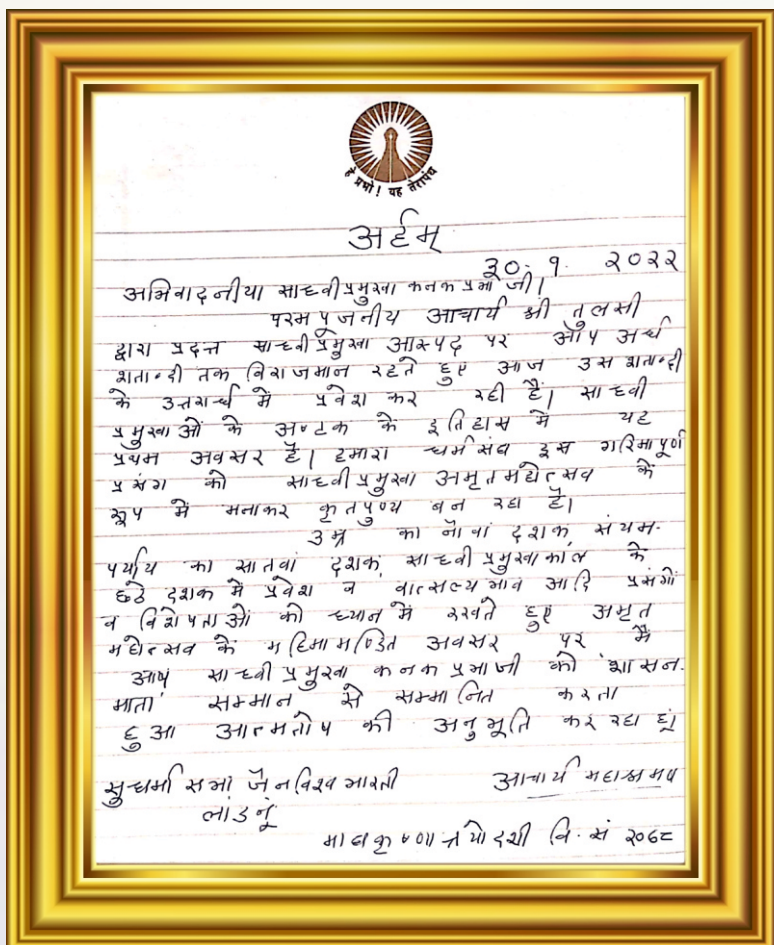 हे प्रभो! यह तेरापंथ
अर्हम्
३०.१. २०२२
अभिवादनीया साध्वीप्रमुखा कनकप्रभाजी।
परमपूजनीय आचार्य श्री तुलसी
द्वारा प्रदत्त साध्वीप्रमुखा आस्पद पर आप अर्ध
शताब्दी तक विराजमान रहते हुए आज उस शताब्दी
के उत्तरार्ध में प्रवेश कर रही हैं। साध्वी
प्रमुखाओं के अष्टक के इतिहास में यह
प्रथम अवसर है। हमारा धर्मसंघ इस गरिमापूर्ण
प्रसंग को साध्वीप्रमुखा अमृतमहोत्सव के
रूप में मनाकर कृतपुण्य बन रहा है।
उम्र का नौवां दशक, संयम-
पर्याय का सातवां दशक, साध्वीप्रमुखाकाल के
छठे दशक में प्रवेश व वात्सल्यभाव आदि प्रसंगों
व विशेषताओं को ध्यान में रखते हुए अमृत
महोत्सव के महिमामण्डित अवसर पर मैं
आप साध्वीप्रमुखा कनकप्रभाजी को शासन-
माता सम्मान से सम्मानित करता
हुआ आत्मतोष की अनुभूति कर रहा हूं।
सुधर्मा सभा जैन विश्व भारती आचार्य महाश्रमण
लाडनूं
माघ कृष्णा त्रयोदशी वि. सं २०७८